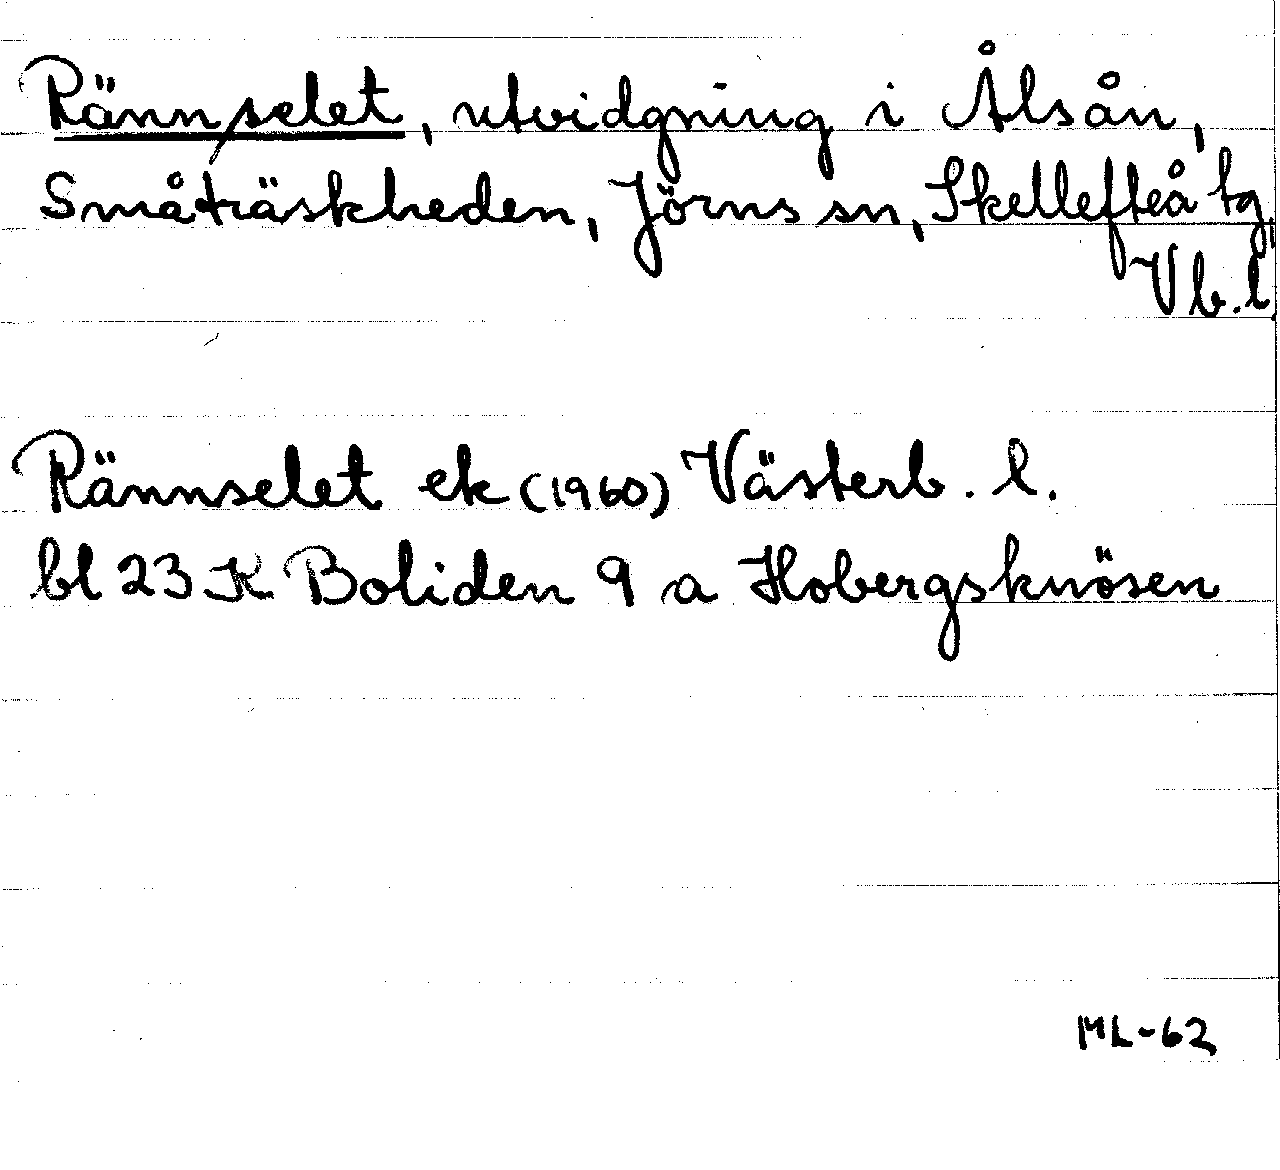 Rännselet, utvidgning i Ålsån,
Småträskheden, Jörns sn, Skellefteå tg,
Vb. l.
Rännselet ek (1960) Västerb. l.
bl 23 K Boliden 9 a Hobergsknösen
ML-62